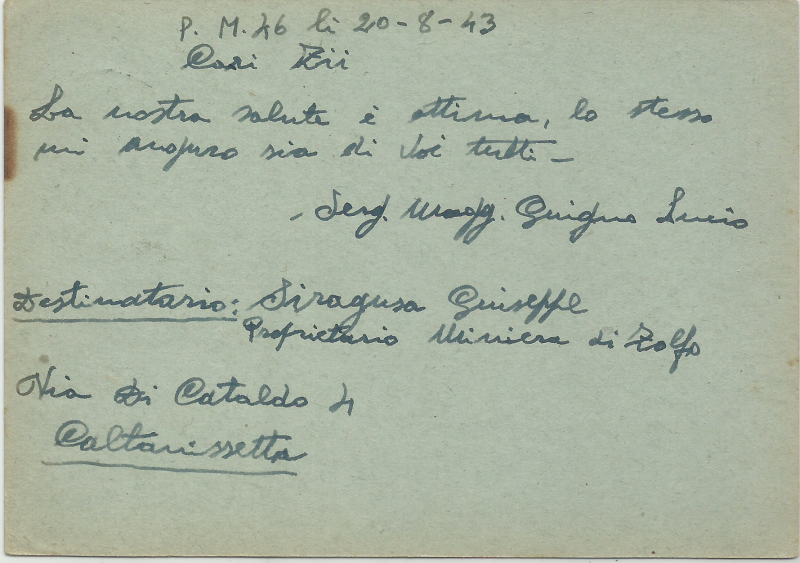 P. M. 46 li 20-8-43
Cari Zii
La nostra salute è ottima, lo stesso
mi auguro sia di Voi tutti -
- Serg. Magg. Lucio
Destinatario: Siragusa Giuseppe
Proprietario Miniera di Zolfo
Via Di Cataldo 4
Caltanissetta